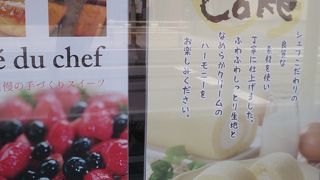 é du chef
慢の手づくりスイーツ
Cake
シェフこだわりの
良質な
素材を使い
丁寧に仕上げました。
ふわふわしっとり生地と
なめらかクリームの
ハーモニーを
お楽しみください。